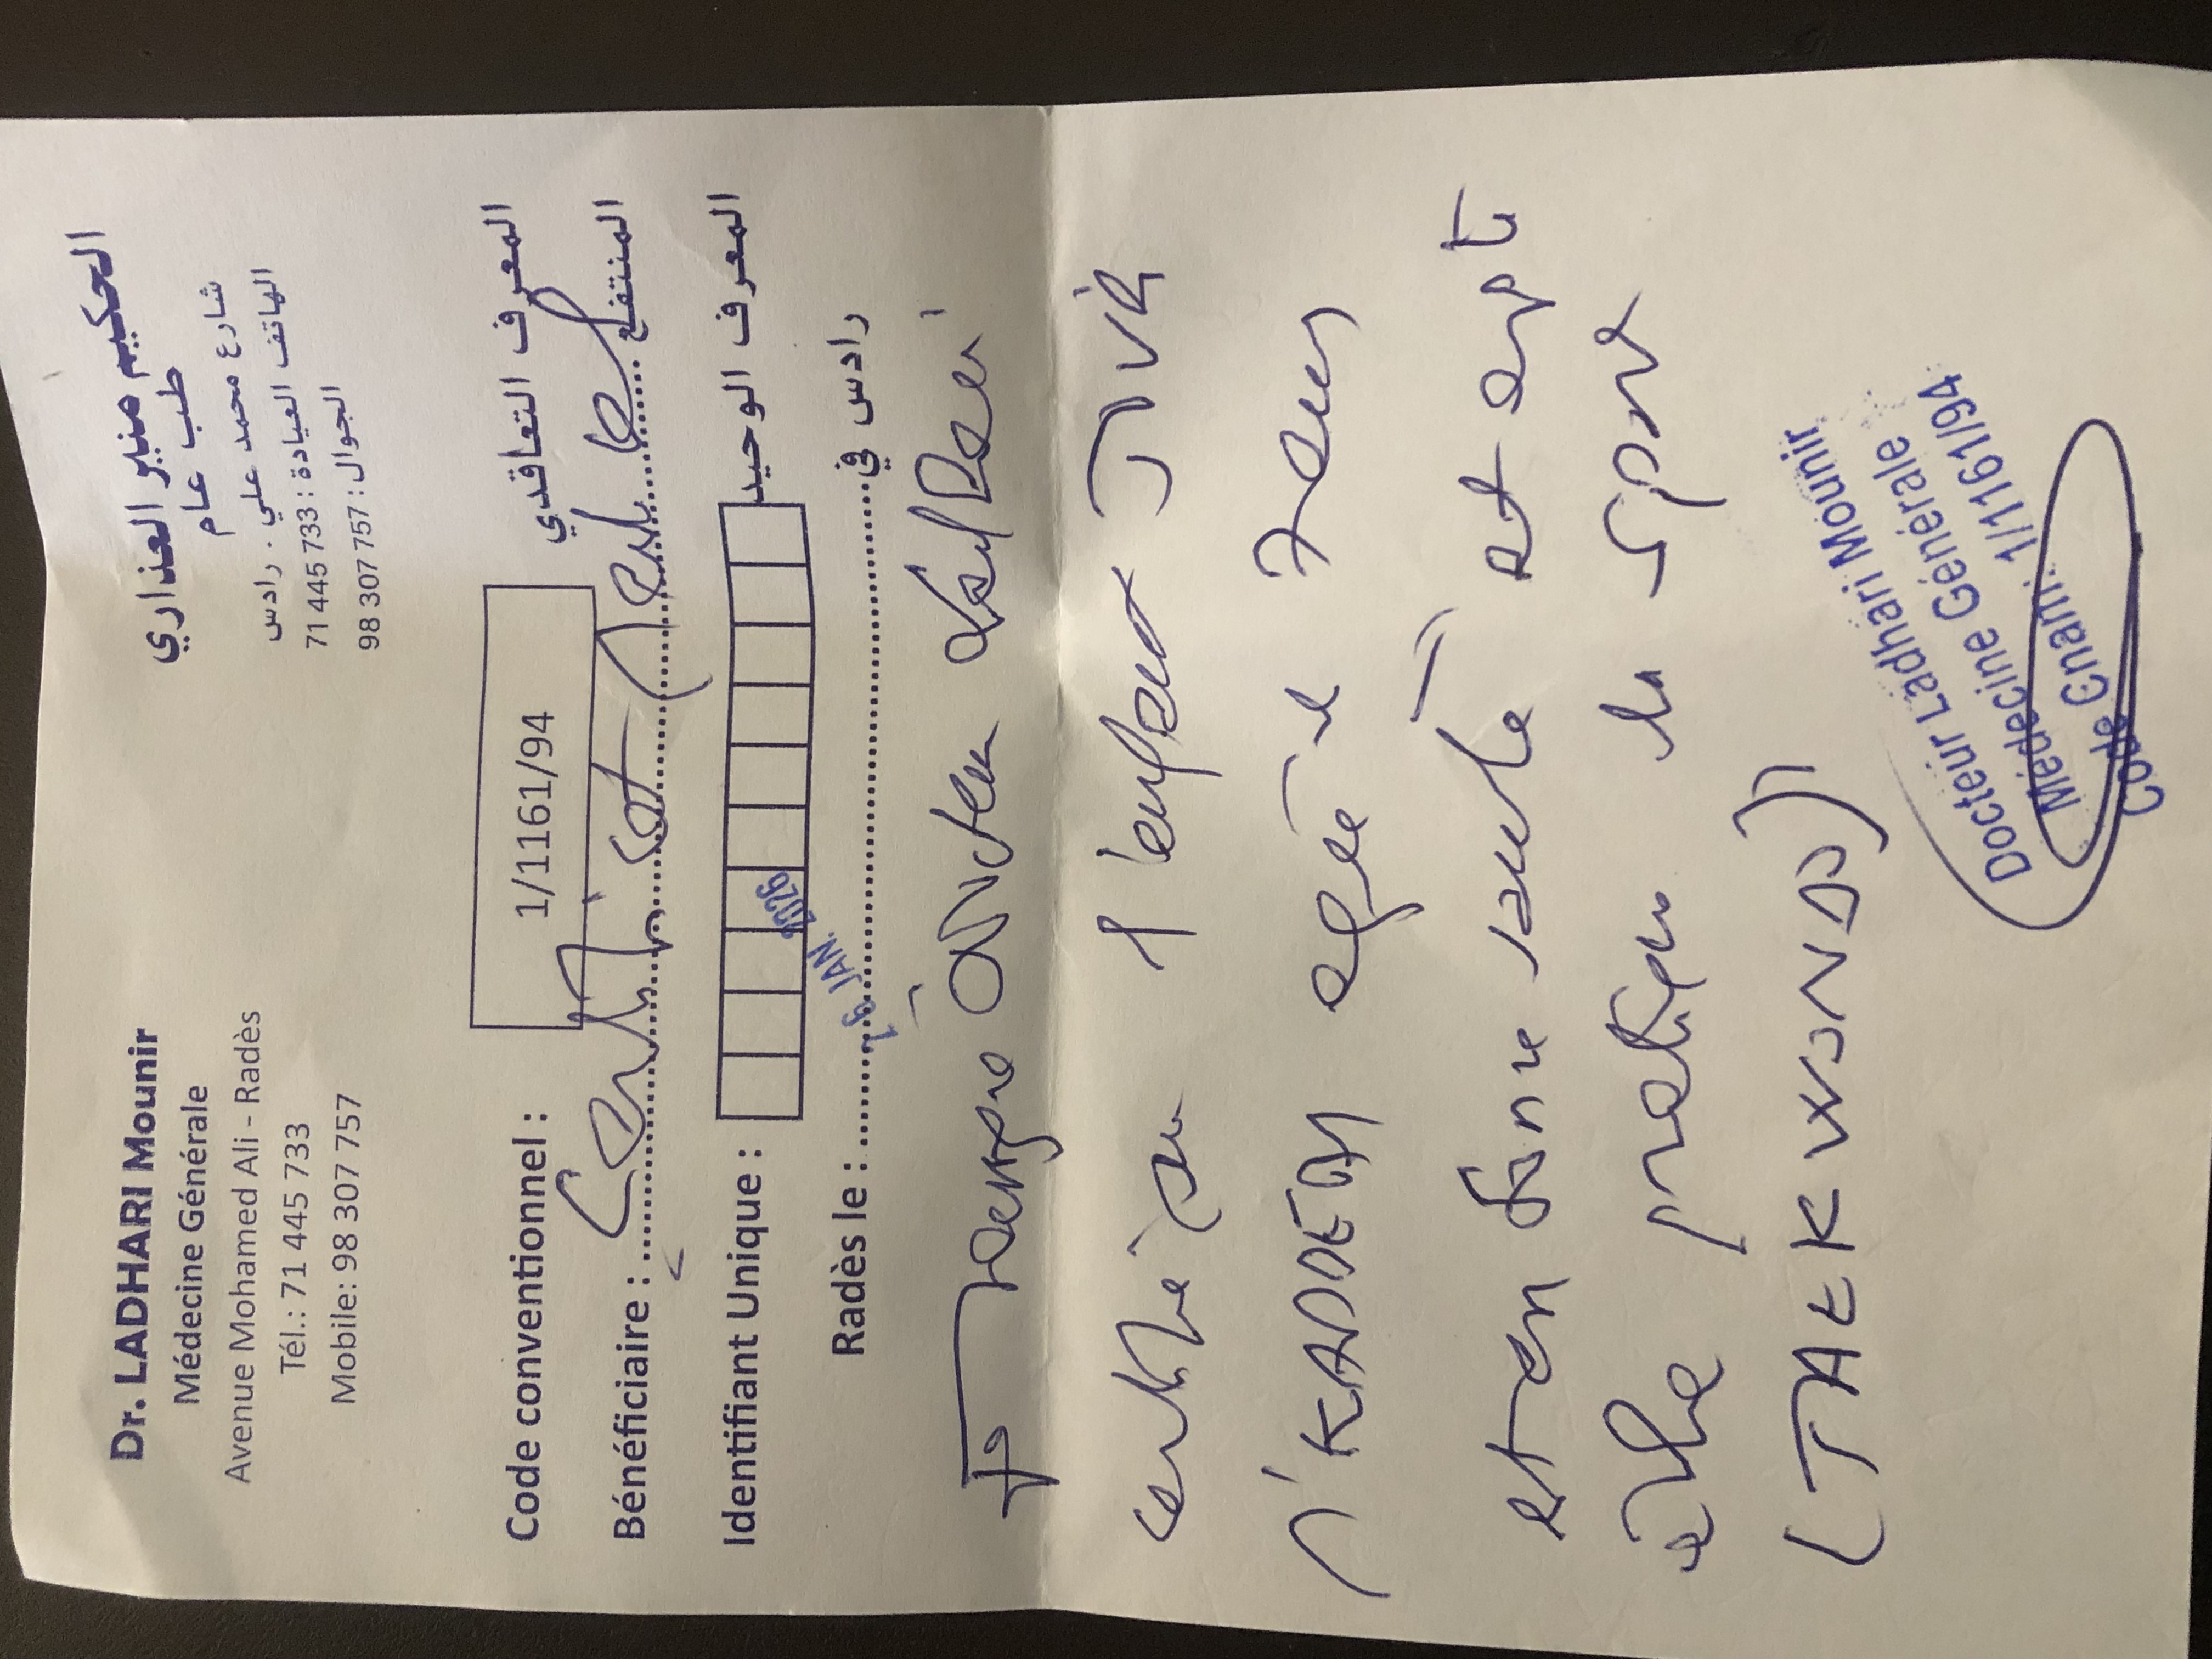 Dr. LADHARI Mounir
Médecine Générale
Avenue Mohamed Ali - Radès
Tél.: 71 445 733
Mobile: 98 307 757
الحكيم منير العذاري
طب عام
شارع محمد علي . رادس
الهاتف العيادة : 733 445 71
الجوال : 757 307 98
Code conventionnel : 1/1161/94 المعرف التعاقدي
Bénéficiaire : Certificat المنتفع
Identifiant Unique : المعرف الوحيد
Radès le : 16 JAN. 2026 رادس في
Je Docteur
certifie l'enfant
KADDECH agée de 7 ans
est en bonne santé et apte
pratiquer le sport
(TAEKWONDO)
Docteur Ladhari Mounir
Médecine Générale
Code Cnam: 1/1161/94